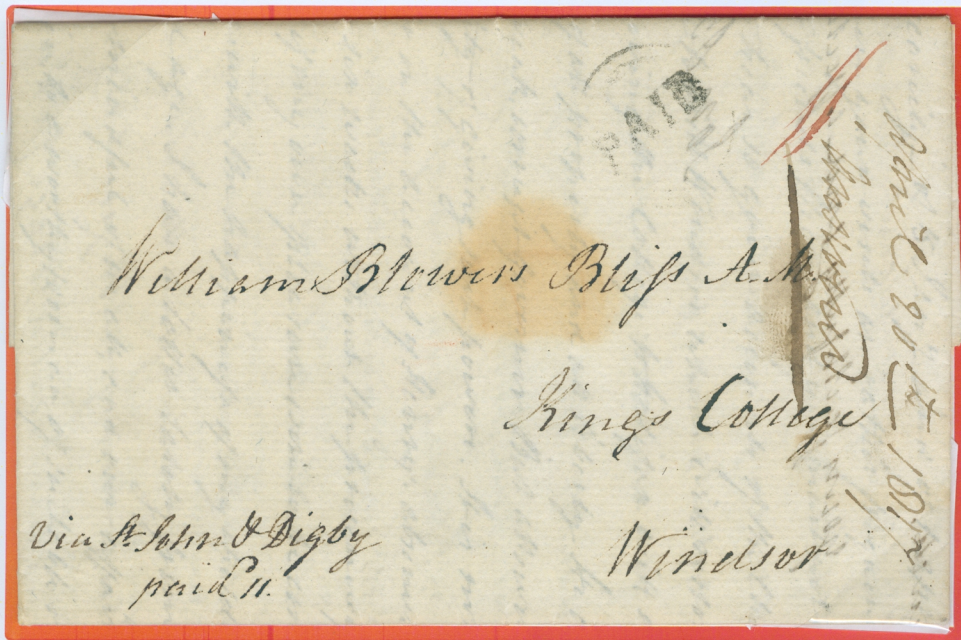 PAID
William Blowers Bliss A.M.
Kings College
Windsor
via St. John & Digby
paid 11.
April 20th 1817